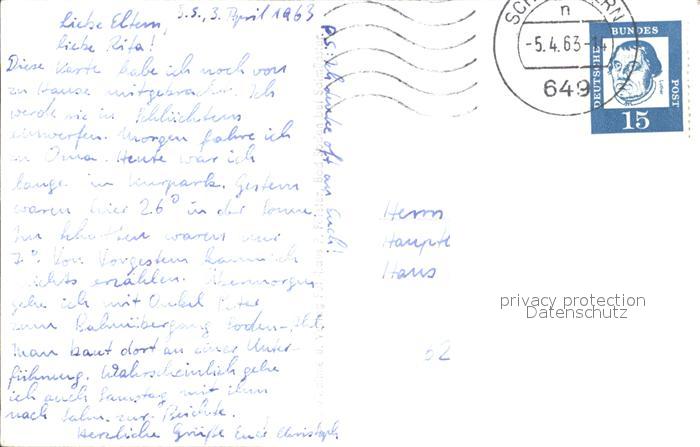 S.S., 3. April 1963
Liebe Eltern,
liebe Rita!
Diese Karte habe ich noch von
zu Hause mitgebracht. Ich
werde sie in Schlüchtern
einwerfen. Morgen fahre ich
zu Oma. Heute war ich
lange im Kurpark. Gestern
waren hier 26° in der Sonne.
Im Schatten waren nur
7°. Von Vorgestern kann ich
nichts erzählen. Übermorgen
gehe ich mit Onkel Peter
zum Bahnübergang
Man baut dort an einer Unter-
führung. Wahrscheinlich gehe
ich auch Samstag mit ihm
nach Salm. zur Beichte.
Herzliche Grüße Euer Christoph
P.S. Ich denke oft an Euch!
n
-5.4.63-14
649
DEUTSCHE
BUNDES
POST
15
Herrn
Haupte
Hans
02
privacy protection
Datenschutz